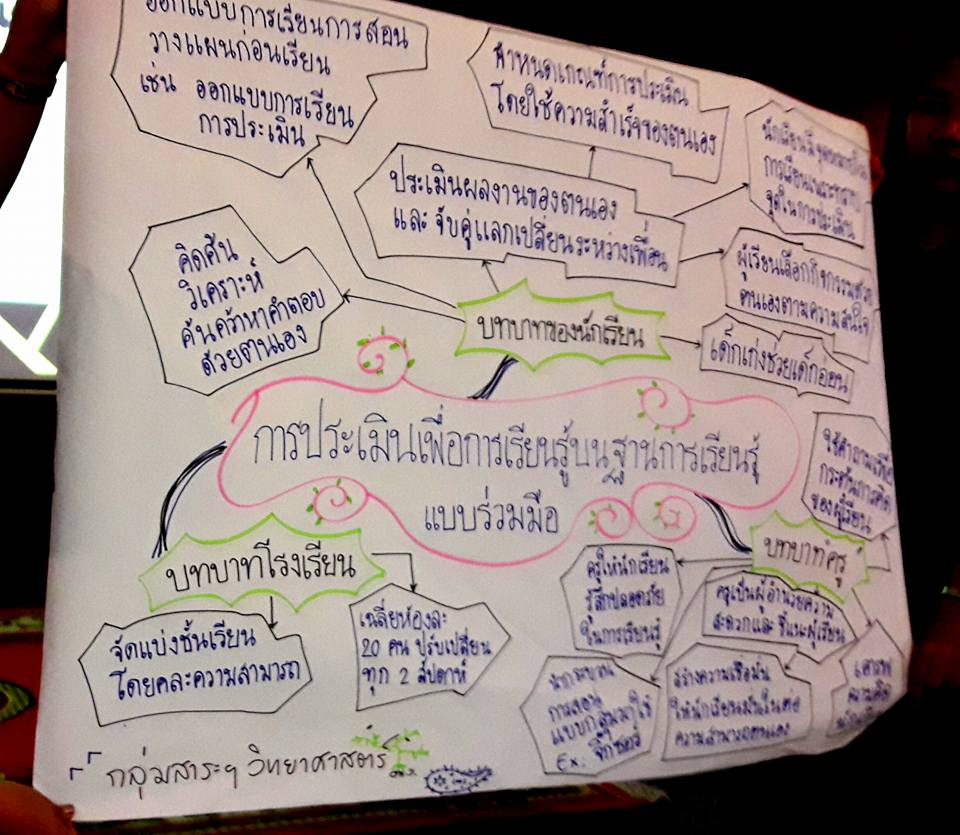 ออกแบบการเรียนการสอน
วางแผนก่อนเรียน
เช่น ออกแบบการเรียน
การประเมิน
กำหนดเกณฑ์การประเมิน
โดยใช้ความสำเร็จของตนเอง
นักเรียนมี
การเรียนเพราะทราบ
จุดในการประเมิน
ประเมินผลงานของตนเอง
และ จับคู่แลกเปลี่ยนระหว่างเพื่อน
ผู้เรียนเลือกกิจกรรมด้วย
ตนเองตามความสนใจ
คิดค้น
วิเคราะห์
ค้นคว้าหาคำตอบ
ด้วยตนเอง
บทบาทของนักเรียน
เด็กเก่งช่วยเด็กอ่อน
การประเมินเพื่อการเรียนรู้บนฐานการเรียนรู้
แบบร่วมมือ
ใช้คำถามเพื่อ
กระตุ้นการคิด
ของผู้เรียน
บทบาทครู
บทบาทโรงเรียน
ครูให้นักเรียน
รู้สึกปลอดภัย
ในการเรียนรู้
ครูเป็นผู้อำนวยความ
สะดวกและ ชี้แนะผู้เรียน
จัดแบ่งชั้นเรียน
โดยคละความสามารถ
เฉลี่ยห้องละ
20 คน ปรับเปลี่ยน
ทุก 2 สัปดาห์
นำกระบวน
การสอน
แบบกลุ่มมาใช้
Ex. จิ๊กซอว์
สร้างความเชื่อมั่น
ให้นักเรียนมั่นใจต่อ
ความสามารถตนเอง
เคารพ
ความคิด
กลุ่มสาระฯ วิทยาศาสตร์